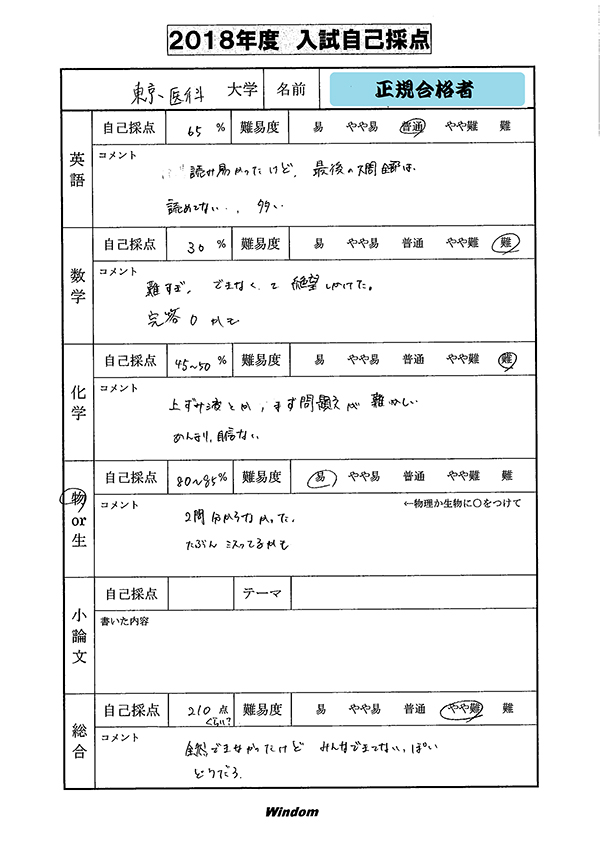 2018年度 入試自己採点
東京医科 大学 名前 正規合格者
英語
自己採点 65 % 難易度 易 やや易 普通 やや難 難
コメント
読み易かったけど、最後の大問全部は、
読めてない 多い
数学
自己採点 30 % 難易度 易 やや易 普通 やや難 難
コメント
難すぎ、できなくて絶望しかけた。
完答0かも
化学
自己採点 45~50 % 難易度 易 やや易 普通 やや難 難
コメント
上ずみ液とか、まず問題文が難かしい
あんまり自信ない
物or生
自己採点 80~85 % 難易度 易 やや易 普通 やや難 難
コメント ←物理か生物に○をつけて
2問分からなかった、
たぶんミスってるかも
小論文
自己採点 テーマ
書いた内容
総合
自己採点 210 点ぐらい? 難易度 易 やや易 普通 やや難 難
コメント
全然できなかったけど みんなできてないっぽい
どうだろ
Windom